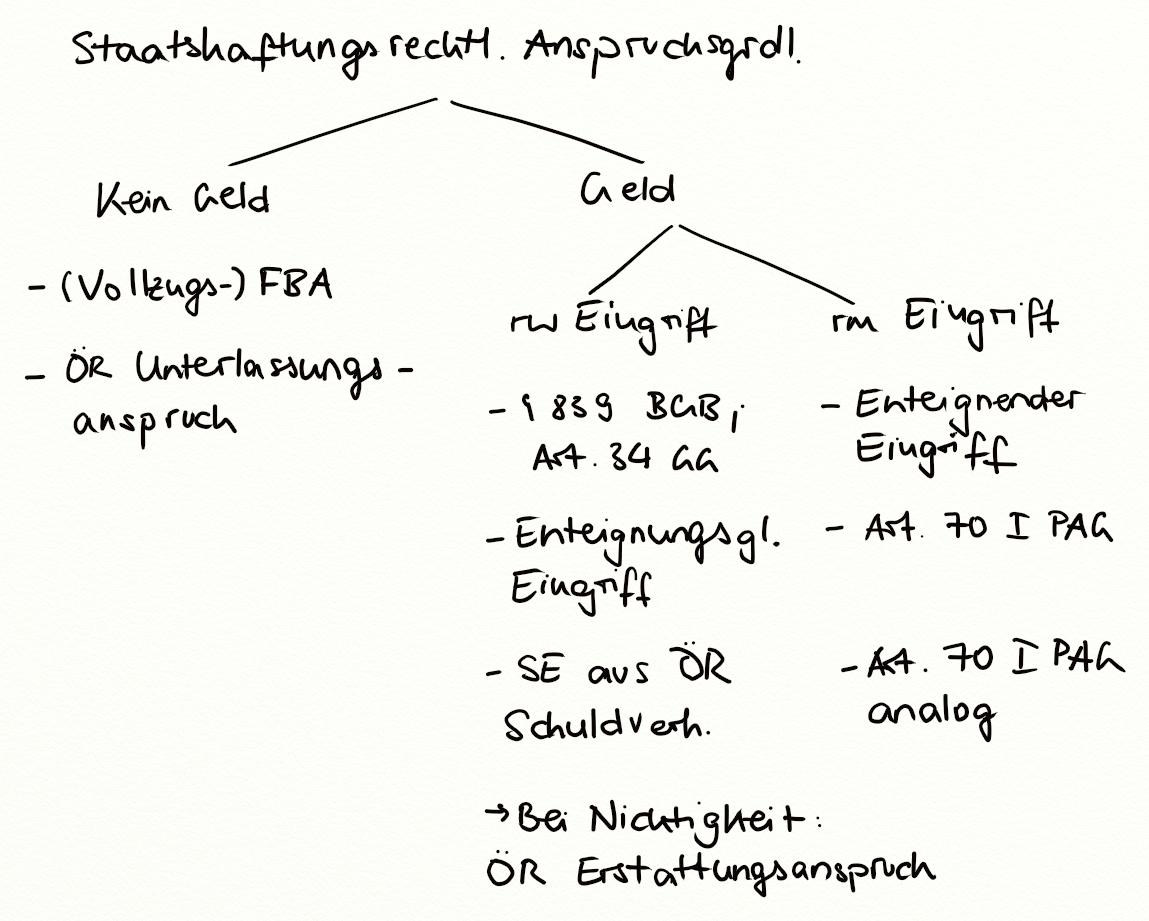 Staatshaftungsrechtl. Anspruchsgrdl.
Kein Geld
- (Vollzugs-) FBA
- ÖR Unterlassungs-
anspruch
Geld
rw Eingriff
- § 839 BGB,
Art. 34 GG
- Enteignungsgl.
Eingriff
- SE aus ÖR
Schuldverh.
→ Bei Nichtigkeit:
ÖR Erstattungsanspruch
rm Eingriff
- Enteignender
Eingriff
- Art. 70 I PAG
- Art. 70 I PAG
analog